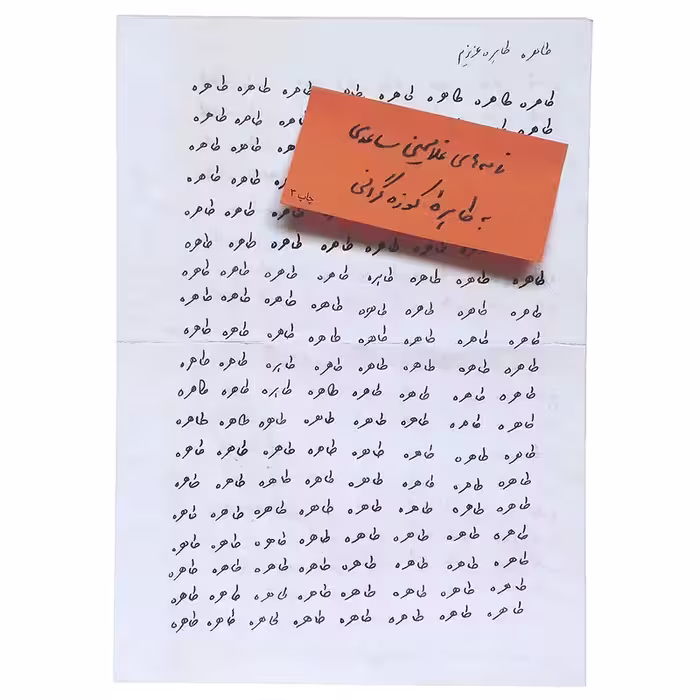 طاهره طاهره عزیزم
طاهره طاهره طاهره طاهره طاهره طاهره طاهره طاهره
طاهره طاهره طاهره
طاهره طاهره طاهره
طاهره طاهره
طاهره طاهره طاهره
طاهره طاهره طاهره طاهره طاهره طاهره
نامه‌های غلامحسین ساعدی
به طاهرهٔ کوزه‌گرانی
چاپ ۳
طاهره طاهره طاهره طاهره طاهره طاهره طاهره طاهره
طاهره طاهره طاهره طاهره طاهره طاهره طاهره طاهره
طاهره طاهره طاهره طاهره طاهره طاهره طاهره طاهره
طاهره طاهره طاهره طاهره طاهره طاهره طاهره طاهره
طاهره طاهره طاهره طاهره طاهره طاهره طاهره طاهره
طاهره طاهره طاهره طاهره طاهره طاهره طاهره طاهره
طاهره طاهره طاهره طاهره طاهره طاهره طاهره طاهره
طاهره طاهره طاهره طاهره طاهره طاهره طاهره طاهره
طاهره طاهره طاهره طاهره طاهره طاهره طاهره طاهره
طاهره طاهره طاهره طاهره طاهره طاهره طاهره طاهره
طاهره طاهره طاهره طاهره طاهره طاهره طاهره طاهره
طاهره طاهره طاهره طاهره طاهره طاهره طاهره طاهره
طاهره طاهره طاهره طاهره طاهره طاهره طاهره طاهره